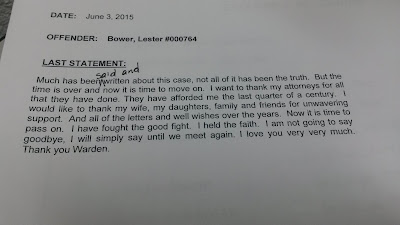 DATE: June 3, 2015
OFFENDER: Bower, Lester #000764
LAST STATEMENT:
said and
Much has been written about this case, not all of it has been the truth. But the
time is over and now it is time to move on. I want to thank my attorneys for all
that they have done. They have afforded me the last quarter of a century. I
would like to thank my wife, my daughters, family and friends for unwavering
support. And all of the letters and well wishes over the years. Now it is time to
pass on. I have fought the good fight. I held the faith. I am not going to say
goodbye, I will simply say until we meet again. I love you very very much.
Thank you Warden.